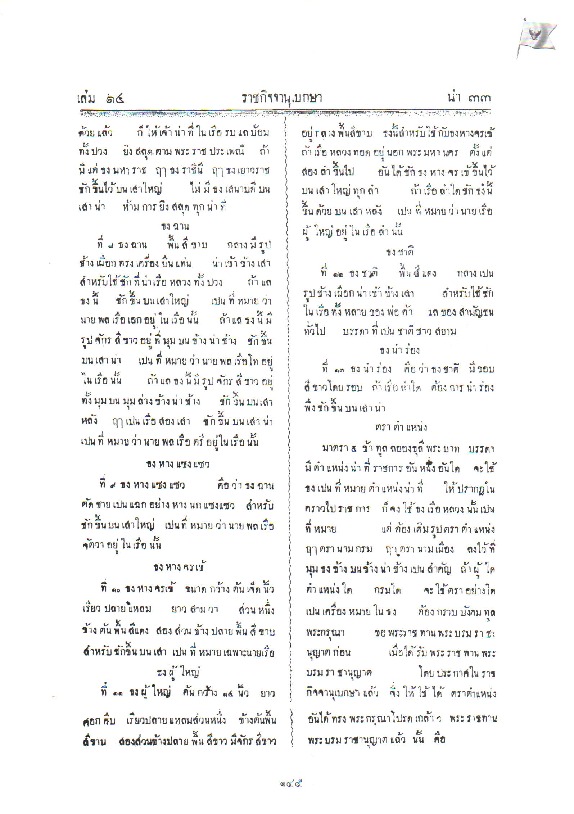 เล่ม ๑๔
ราชกิจจานุเบกษา
น่า ๓๓
ด้วยแล้ว ก็ให้เจ้าน่าที่ในเรือรบแลป้อม
ทั้งปวง ยิงสลุตตามพระราชประเพณี ถ้า
มีแต่ธงมหาราช ฤๅธงราชินี ฤๅธงเยาวราช
ชักขึ้นไว้บนเสาใหญ่ ไม่มีธงเสนาบดีบน
เสาน่า ห้ามการยิงสลุตทุกน่าที่
ธงฉาน
ที่ ๘ ธงฉาน พื้นสีขาบ กลางมีรูป
ช้างเผือกทรงเครื่องยืนแท่น น่าเข้าข้างเสา
สำหรับใช้ชักที่น่าเรือหลวงทั้งปวง ถ้าแล
ธงนี้ ชักขึ้นบนเสาใหญ่ เปนที่หมายว่า
นายพลเรือเอกอยู่ในเรือนั้น ถ้าแลธงนี้มี
รูปจักรสีขาวอยู่ที่มุมบนข้างน่าช้าง ชักขึ้น
บนเสาน่า เปนที่หมายว่านายพลเรือโทอยู่
ในเรือนั้น ถ้าแลธงนี้มีรูปจักรสีขาวอยู่
ทั้งมุมบนมุมล่างข้างน่าช้าง ชักขึ้นบนเสา
หลัง ฤๅเปนเรือสองเสา ชักขึ้นบนเสาน่า
เปนที่หมายว่านายพลเรือตรีอยู่ในเรือนั้น
ธงหางแซงแซว
ที่ ๙ ธงหางแซงแซว คือว่าธงฉาน
ตัดชายเปนแฉกอย่างหางนกแซงแซว สำหรับ
ชักขึ้นบนเสาใหญ่ เปนที่หมายว่านายพลเรือ
จัตวาอยู่ในเรือนั้น
ธงหางจรเข้
ที่ ๑๐ ธงหางจรเข้ ขนาดกว้างต้นเจ็ดนิ้ว
เรียวปลายแหลม ยาวสามวา ส่วนหนึ่ง
ข้างต้นพื้นสีแดง สองส่วนข้างปลายพื้นสีขาบ
สำหรับชักขึ้นบนเสา เปนที่หมายเฉพาะนายเรือ
ธงผู้ใหญ่
ที่ ๑๑ ธงผู้ใหญ่ ต้นกว้าง ๑๔ นิ้ว ยาว
ศอกคืบ เรียวปลายแหลมส่วนหนึ่ง ข้างต้นพื้น
สีขาบ สองส่วนข้างปลายพื้นสีขาว มีจักรสีขาว
อยู่กลางพื้นสีขาบ ธงนี้สำหรับใช้กับธงหางจรเข้
ถ้าเรือหลวงทอดอยู่นอกพระมหานคร ตั้งแต่
สองลำขึ้นไป อันได้ชักธงหางจรเข้ขึ้นไว้
บนเสาใหญ่ทุกลำ ถ้าเรือลำใดชักธงนี้
ขึ้นด้วยบนเสาหลัง เปนที่หมายว่านายเรือ
ผู้ใหญ่อยู่ในเรือลำนั้น
ธงชาติ
ที่ ๑๒ ธงชาติ พื้นสีแดง กลางเปน
รูปช้างเผือกน่าเข้าข้างเสา สำหรับใช้ชัก
ในเรือทั้งหลายของพ่อค้า แลของสามัญชน
ทั่วไป บรรดาที่เปนชาติชาวสยาม
ธงนำร่อง
ที่ ๑๓ ธงนำร่อง คือว่าธงชาติ มีขอบ
สีขาวโดยรอบ ถ้าเรือลำใด ต้องการนำร่อง
พึงชักขึ้นบนเสาน่า
ตราตำแหน่ง
มาตรา ๕ ข้าทูลลอองธุลีพระบาท บรรดา
มีตำแหน่งน่าที่ราชการอันหนึ่งอันใด จะใช้
ธงเปนที่หมายตำแหน่งน่าที่ ให้ปรากฏใน
คราวไปราชการ ก็คงใช้ธงเรือหลวงนั้นเปน
ที่หมาย แต่ต้องเติมรูปตราตำแหน่ง
ฤๅตรานามกรม ฤๅตรานามเมือง ลงไว้ที่
มุมธงข้างบนข้างน่าช้างเปนสำคัญ ถ้าผู้ใด
ตำแหน่งใด กรมใด จะใช้ตราอย่างใด
เปนเครื่องหมายในธง ต้องกราบบังคมทูล
พระกรุณา ขอพระราชทานพระบรมราชา
นุญาตก่อน เมื่อได้รับพระราชทานพระ
บรมราชานุญาต โดยประกาศในราช
กิจจานุเบกษาแล้ว จึงให้ใช้ได้ ตราตำแหน่ง
อันได้ทรงพระกรุณาโปรดเกล้าฯ พระราชทาน
พระบรมราชานุญาตแล้ว นั้น คือ